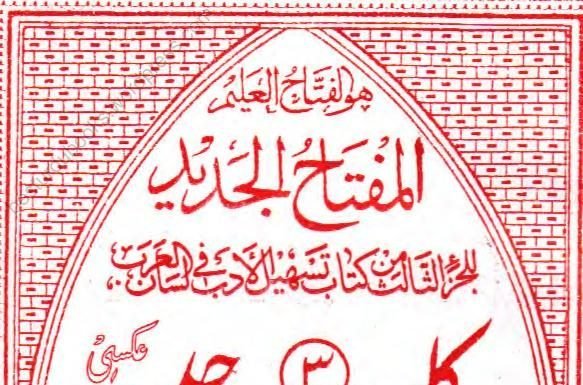 هو الفتاح العليم
المفتاح الجديد
للجزء الثالث من كتاب تسهيل الأدب في لسان العرب
عكسي
٣